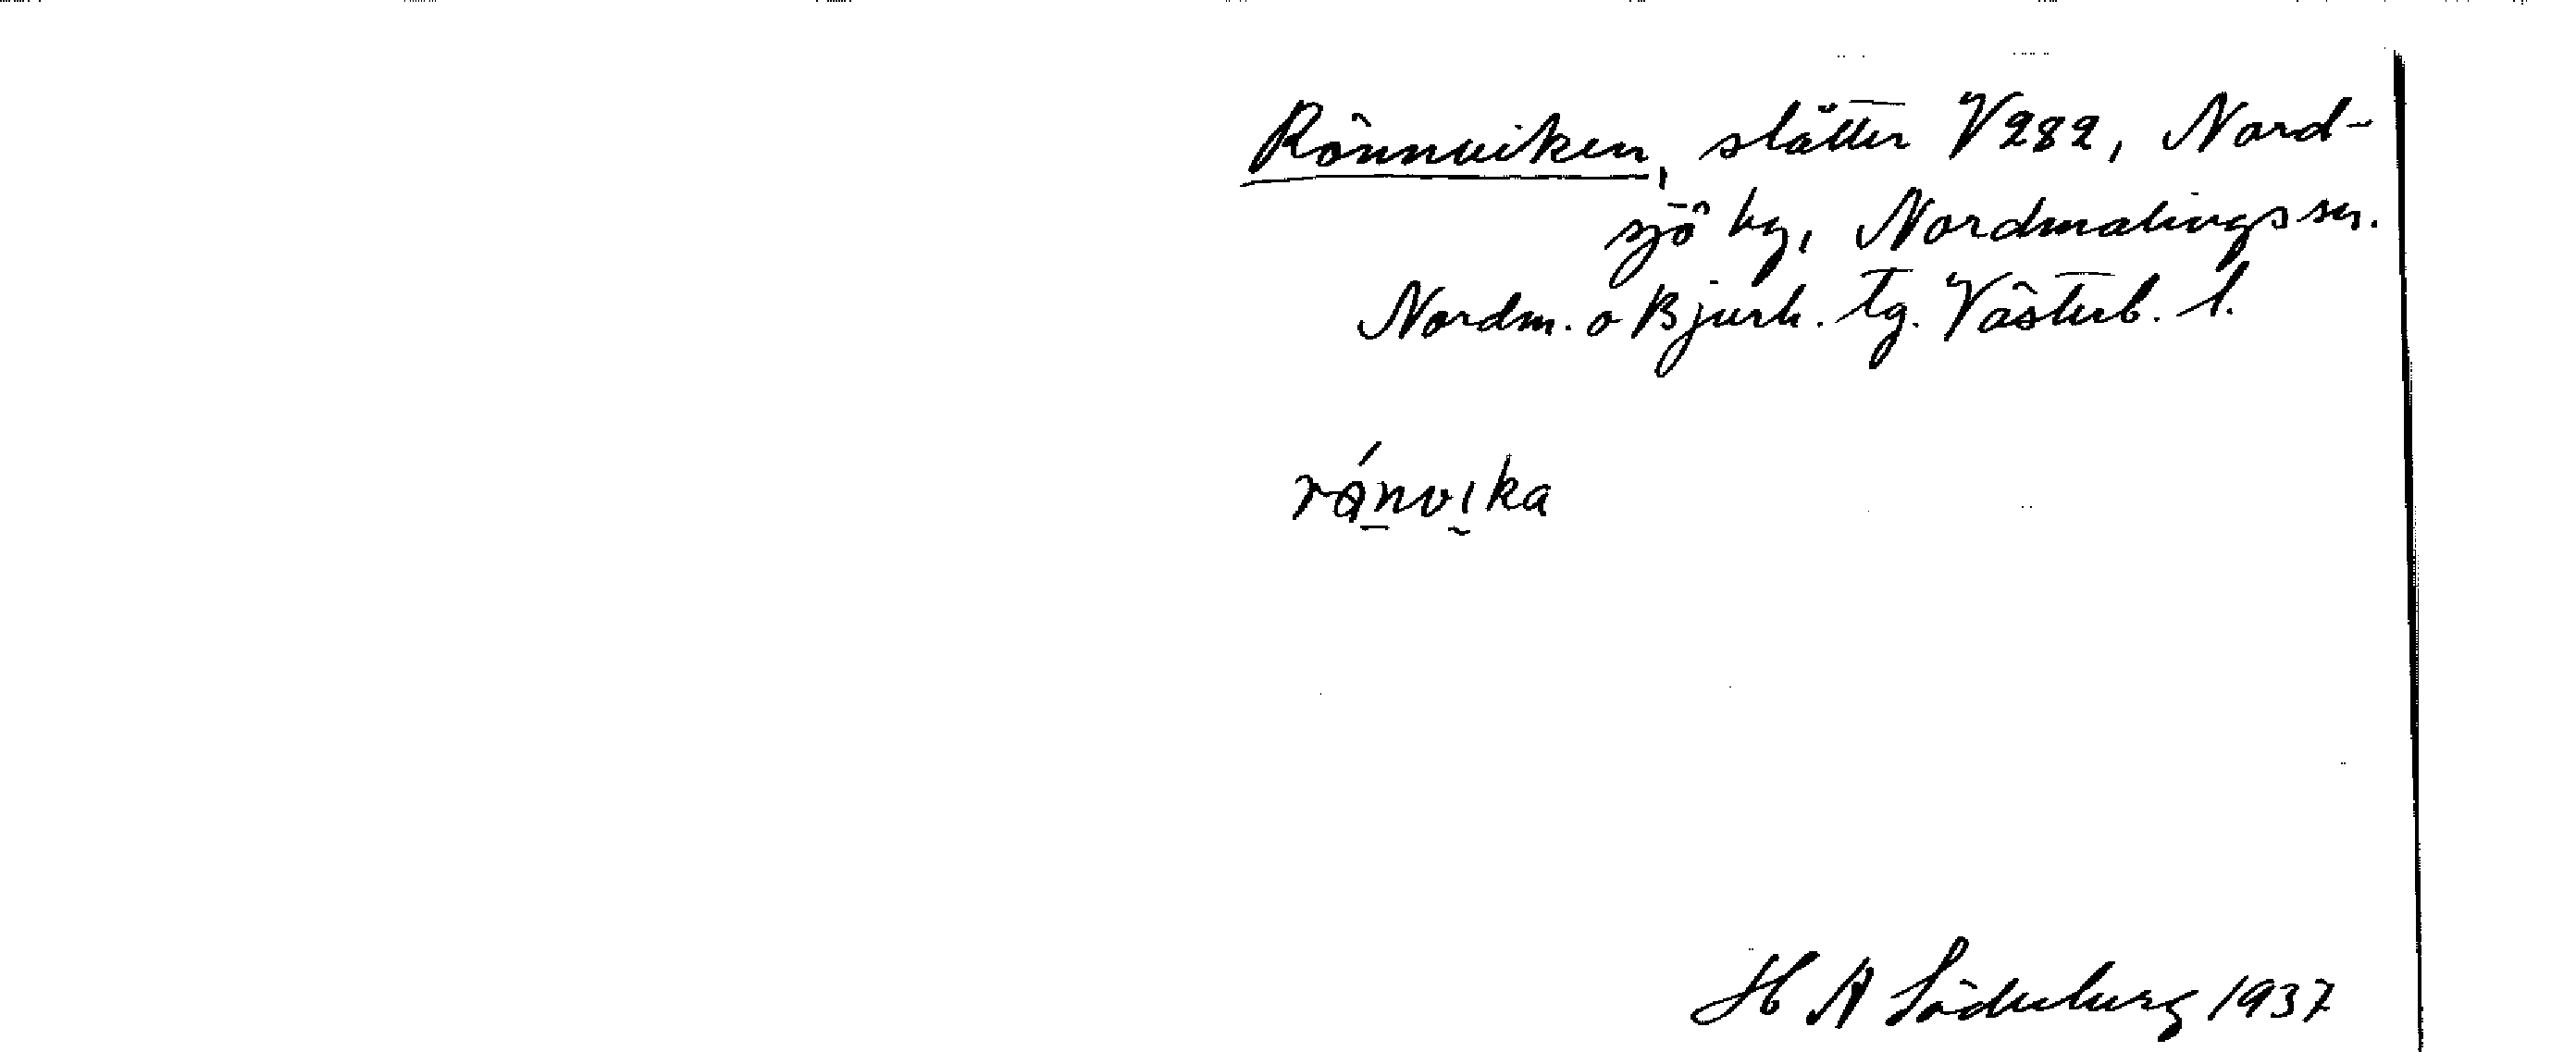 Rönnviken, slätter V282, Nord-
sjö by, Nordmalings sn.
Nordm. o Bjurh. tg. Västerb. l.
rǿn̲vi̮ka
H A Söderberg 1937